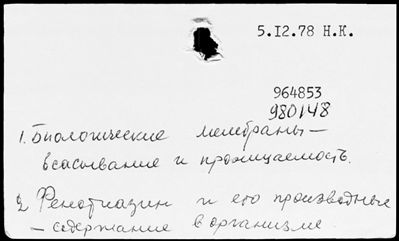 5.I2.78 Н.К.
964853
980148
1. Биологические мембраны –
всасывание и проницаемость.
2. Фенотиазин и его производные
– содержание в организме